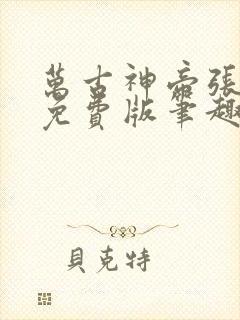 萬古神帝張
免費版筆趣
貝克特